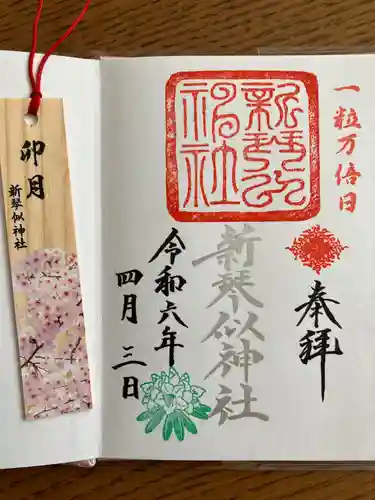 卯月
新琴似神社
一粒万倍日
奉拝
新琴似神社
新琴似神社
令和六年
四月三日